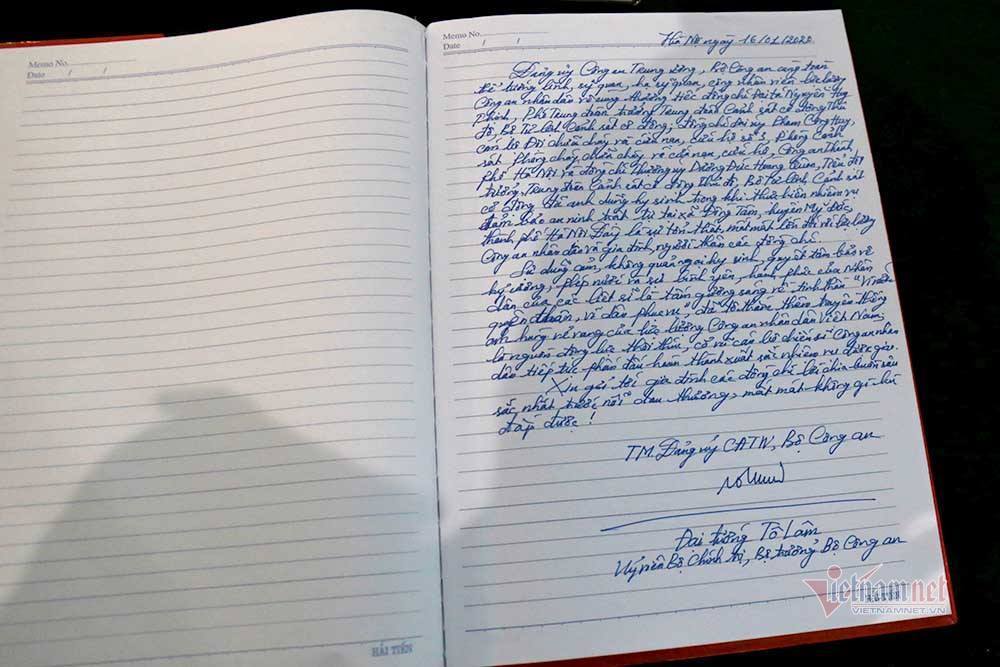 Memo No.
Date / /
HẢI TIẾN
Memo No.
Date / /
Hà Nội ngày 16/01/2020
Đảng ủy Công an Trung ương, Bộ Công an cùng toàn
thể tướng lĩnh, sỹ quan, hạ sỹ quan, công nhân viên lực lượng
Công an nhân dân vô cùng thương tiếc đồng chí Đại tá Nguyễn Huy
Thịnh, Phó Trung đoàn trưởng Trung đoàn Cảnh sát cơ động Thủ
đô, Bộ Tư lệnh Cảnh sát cơ động; đồng chí Đại úy Phạm Công Huy,
cán bộ Đội chữa cháy và cứu nạn, cứu hộ số 3, Phòng Cảnh
sát phòng cháy, chữa cháy và cứu nạn, cứu hộ, Công an thành
phố Hà Nội và đồng chí Thượng úy Dương Đức Hoàng Quân, Tiểu đội
trưởng, Trung đoàn Cảnh sát cơ động Thủ đô, Bộ Tư lệnh Cảnh sát
cơ động đã anh dũng hy sinh trong khi thực hiện nhiệm vụ
đảm bảo an ninh trật tự tại xã Đồng Tâm, huyện Mỹ Đức,
thành phố Hà Nội. Đây là sự tổn thất, mất mát lớn đối với lực lượng
Công an nhân dân và gia đình, người thân các đồng chí.
Sự dũng cảm, không quản ngại hy sinh, quyết tâm bảo vệ
kỷ cương, phép nước và sự bình yên, hạnh phúc của Nhân
dân của các liệt sĩ là tấm gương sáng về tinh thần "Vì nước
quên thân, vì dân phục vụ", đã tô thắm thêm truyền thống
anh hùng vẻ vang của lực lượng Công an nhân dân Việt Nam,
là nguồn động lực thôi thúc, cổ vũ cán bộ chiến sĩ Công an nhân
dân tiếp tục phấn đấu hoàn thành xuất sắc nhiệm vụ được giao.
Xin gửi tới gia đình các đồng chí lời chia buồn sâu
sắc nhất trước nỗi đau thương, mất mát không gì bù
đắp được!
TM. Đảng ủy CATW, Bộ Công an
Đại tướng Tô Lâm
Ủy viên Bộ Chính trị, Bộ trưởng Bộ Công an
vietnamnet
VIETNAMNET.VN